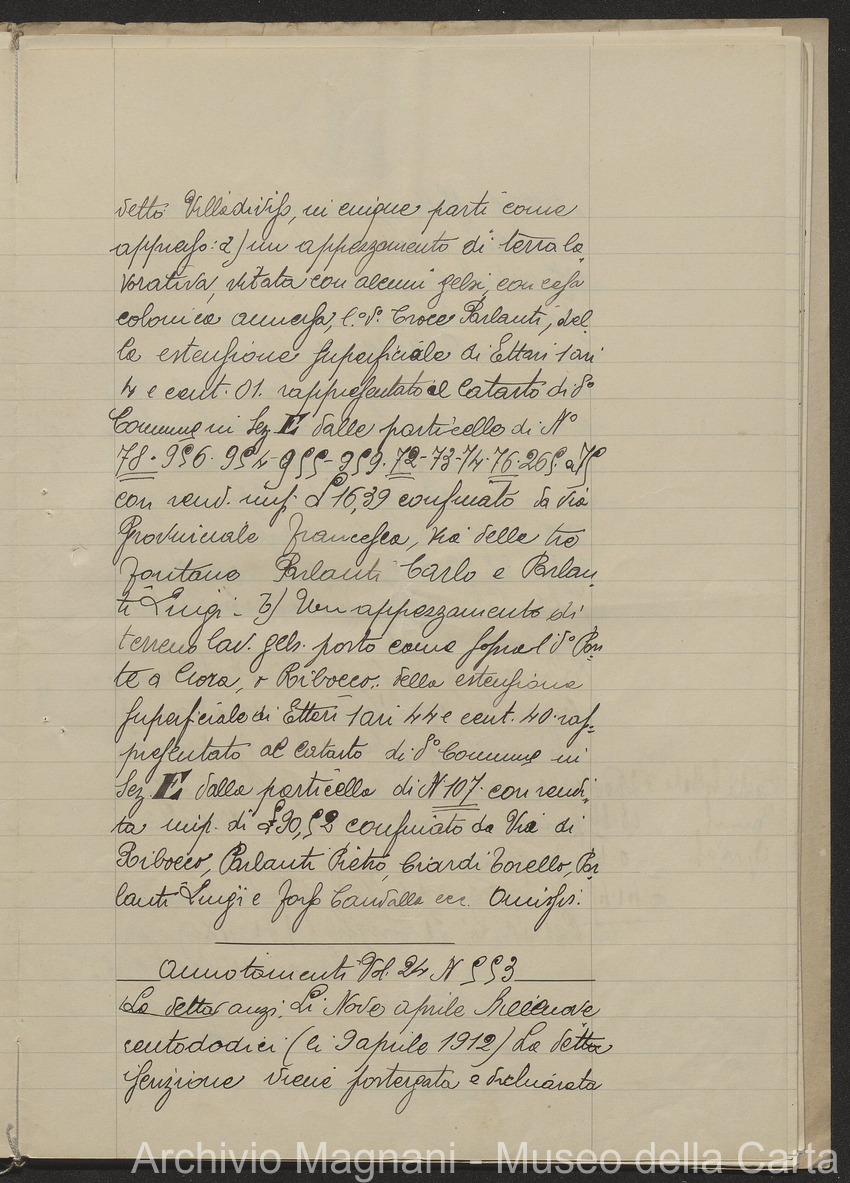 detto Villa di vizo, in cinque parti come
appresso: a) un appezzamento di terra la=
vorativa, vitata con alcuni gelsi, con casa
colonica annessa, l.º d.º Croce Parlanti, del
la estensione superficiale di Ettari 1 ari
4 e cent. 01. rappresentato al Catasto di dº
Comune in Sez E dalle particelle di Nº
78. 956. 954 - 955 - 959. 72 - 73 - 74. 76. 265. a 75
con rend. imp. £ 16,39 confinato da Via
Provinciale Francesca, Via delle tre
fontane Parlanti Carlo e Parlan=
ti Luigi - b) Un appezzamento di
terreno lav. gels. posto come sopra l d.º Pon=
te a Cora, o Ribocco. della estensione
superficiale di Ettari 1 ari 44 e cent. 40. rap=
presentato al Catasto di dº Comune in
Sez E dalla particella di N 107. con rendi=
ta imp. di £ 30,52 confinato da Via di
Ribocco, Parlanti Pietro, Ciardi Torello, Par
lanti Luigi e fosso Candalla ecc. Omissis.
Annotamenti Vol. 24 N 553
La detta anzi. Li Nove aprile Millenove
centododici (li 9 aprile 1912) La detta
iscrizione viene postergata e dichiarata
Archivio Magnani - Museo della Carta